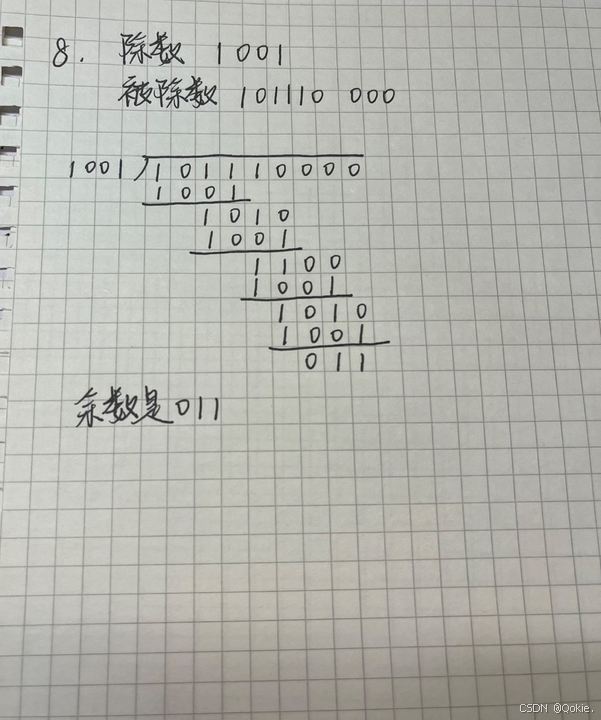 8. 除数 1001
被除数 101110 000
1001 1 0 1 1 1 0 0 0 0
1 0 0 1
1 0 1 0
1 0 0 1
1 1 0 0
1 0 0 1
1 0 1 0
1 0 0 1
0 1 1
余数是011
CSDN @Qokie.